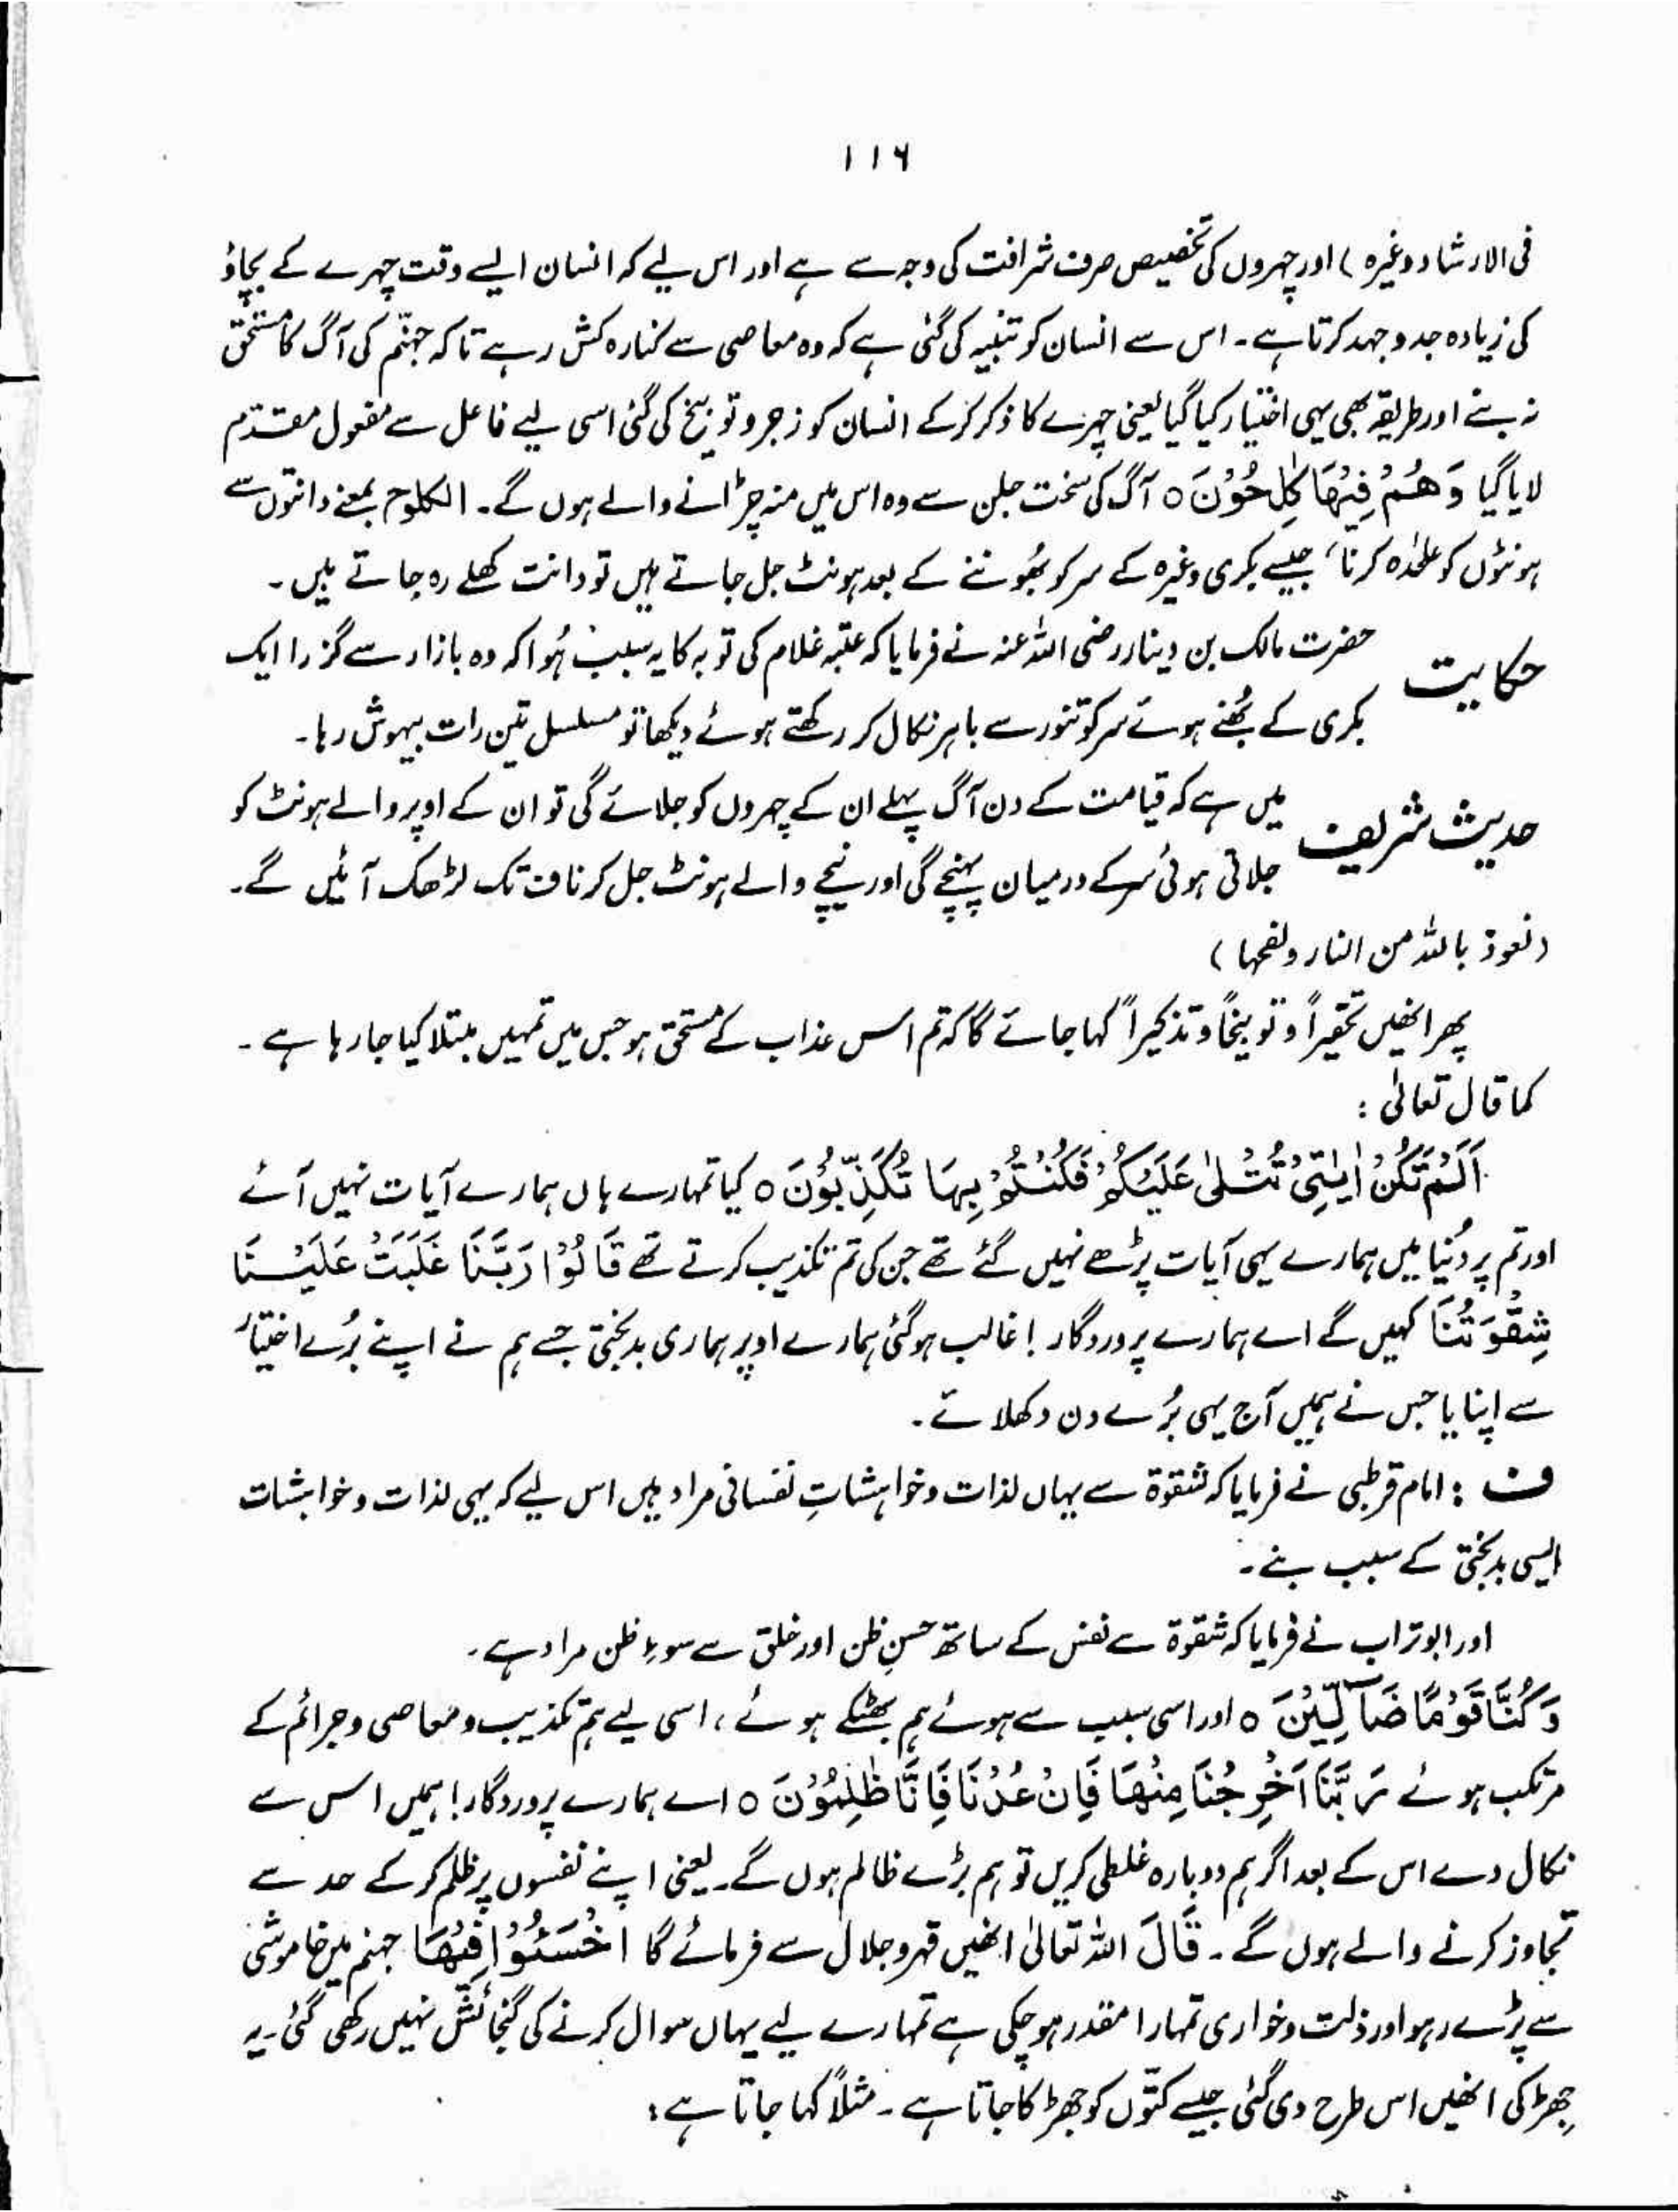 ۱۱۶
فی الارشاد وغیرہ) اور چہروں کی تخصیص صرف شرافت کی وجہ سے ہے اور اس لیے کہ انسان ایسے وقت چہرے کے بچاؤ
کی زیادہ جدوجہد کرتا ہے۔ اس سے انسان کو تنبیہ کی گئی ہے کہ وہ معاصی سے کنارہ کش رہے تاکہ جہنّم کی آگ کا مستحق
نہ بنے اور طریقہ بھی یہی اختیار کیا گیا یعنی چہرے کا ذکر کرکے انسان کو زجر و توبیخ کی گئی اسی لیے فاعل سے مفعول مقدّم
لایا گیا وَهُمْ فِيْهَا كٰلِحُوْنَ ○ آگ کی سخت جلن سے وہ اس میں منہ چڑانے والے ہوں گے۔ الکلوح بمعنے دانتوں سے
ہونٹوں کو علٰحدہ کرنا، جیسے بکری وغیرہ کے سر کو بھُوننے کے بعد ہونٹ جل جاتے ہیں تو دانت کھلے رہ جاتے ہیں۔
حکایت حضرت مالک بن دینار رضی اللہ عنہ نے فرمایا کہ عتبہ غلام کی توبہ کا یہ سبب ہُوا کہ وہ بازار سے گزرا ایک
بکری کے بھُنے ہوئے سر کو تنور سے باہر نکال کر رکھتے ہوئے دیکھا تو مسلسل تین رات بیہوش رہا۔
حدیث شریف میں ہے کہ قیامت کے دن آگ پہلے ان کے چہروں کو جلائے گی تو ان کے اوپر والے ہونٹ کو
جلاتی ہوئی سر کے درمیان پہنچے گی اور نیچے والے ہونٹ جل کر ناف تک لڑھک آئیں گے۔
(نعوذ باللہ من النار ولفحہا)
پھر انھیں تحقیراً و توبیخاً و تذکیراً کہا جائے گا کہ تم اس عذاب کے مستحق ہو جس میں تمہیں مبتلا کیا جا رہا ہے۔
کما قال تعالیٰ :
اَلَمْ تَكُنْ اٰيٰتِيْ تُتْلٰى عَلَيْكُمْ فَكُنْتُمْ بِهَا تُكَذِّبُوْنَ ○ کیا تمہارے ہاں ہمارے آیات نہیں آئے
اور تم پر دُنیا میں ہمارے یہی آیات پڑھے نہیں گئے تھے جن کی تم تکذیب کرتے تھے قَالُوْا رَبَّنَا غَلَبَتْ عَلَيْنَا
شِقْوَتُنَا کہیں گے اے ہمارے پروردگار! غالب ہو گئی ہمارے اوپر ہماری بدبختی جسے ہم نے اپنے بُرے اختیار
سے اپنایا جس نے ہمیں آج یہی بُرے دن دکھلائے۔
ف : امام قرطبی نے فرمایا کہ شقوۃ سے یہاں لذات و خواہشاتِ نفسانی مراد ہیں اس لیے کہ یہی لذات و خواہشات
ایسی بدبختی کے سبب بنے۔
اور ابوتراب نے فرمایا کہ شقوۃ سے نفس کے ساتھ حسنِ ظن اور خلق سے سوءِ ظن مراد ہے۔
وَكُنَّا قَوْمًا ضَآلِّيْنَ ○ اور اسی سبب سے ہوئے ہم بھٹکے ہوئے، اسی لیے ہم تکذیب و معاصی و جرائم کے
مرتکب ہوئے رَبَّنَا اَخْرِجْنَا مِنْهَا فَاِنْ عُدْنَا فَاِنَّا ظٰلِمُوْنَ ○ اے ہمارے پروردگار! ہمیں اس سے
نکال دے اس کے بعد اگر ہم دوبارہ غلطی کریں تو ہم بڑے ظالم ہوں گے۔ یعنی اپنے نفسوں پر ظلم کرکے حد سے
تجاوز کرنے والے ہوں گے۔ قَالَ اللہ تعالیٰ انھیں قہر و جلال سے فرمائے گا اخْسَئُوْا فِيْهَا جہنم میں خاموشی
سے پڑے رہو اور ذلت و خواری تمہارا مقدر ہو چکی ہے تمہارے لیے یہاں سوال کرنے کی گنجائش نہیں رکھی گئی۔ یہ
جھڑکی انھیں اس طرح دی گئی جیسے کتّوں کو جھڑکا جاتا ہے۔ مثلاً کہا جاتا ہے :